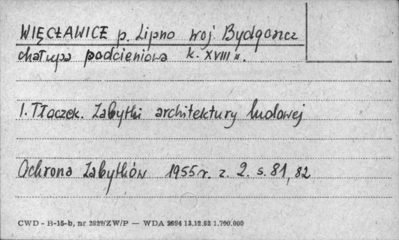 WIĘCŁAWICE p. Lipno woj Bydgoszcz
chałupa podcieniowa k. XVIII w.
I. Tłoczek. Zabytki architektury ludowej
Ochrona Zabytków 1955 r. z. 2. s. 81, 82
CWD - B-15-b, nr 3929/ZW/P — WDA 2694 13.12.52 1.700.000